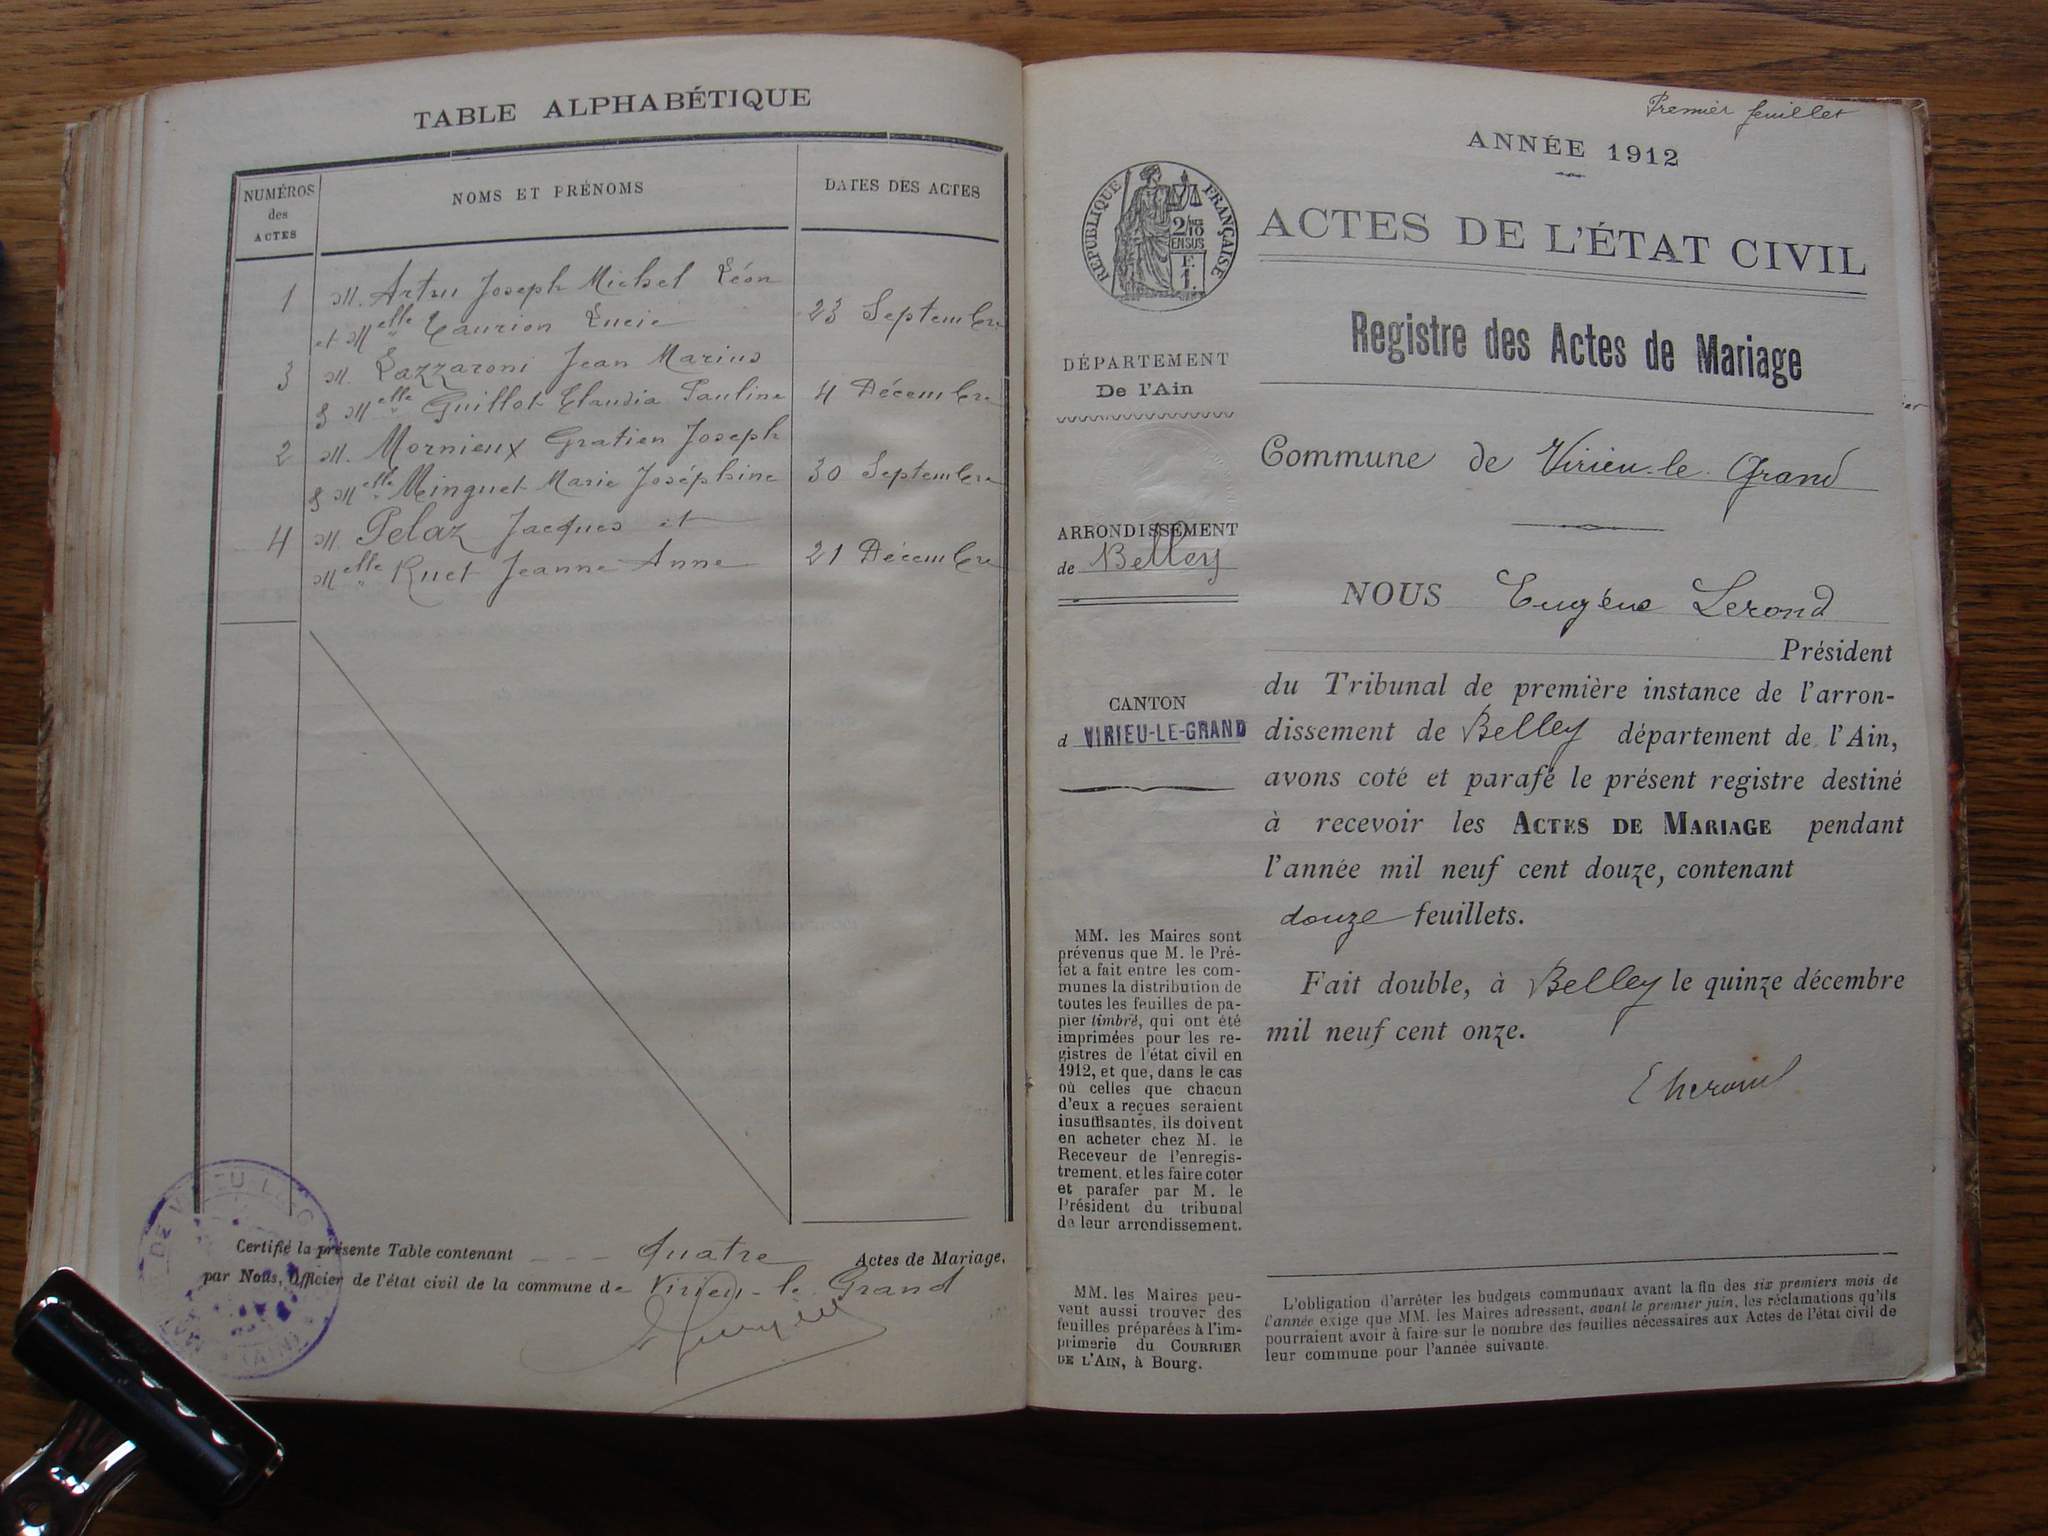 TABLE ALPHABÉTIQUE
NUMÉROS
des
ACTES
NOMS ET PRÉNOMS
DATES DES ACTES
1 M. Artru Joseph Michel Léon
et Melle Taurion Lucie 23 Septembre
3 M. Lazzaroni Jean Marius
& Melle Guillot Claudia Pauline 4 Décembre
2 M. Mornieux Gratien Joseph
& Melle Minguet Marie Joséphine 30 Septembre
4 M. Pelaz Jacques et
Melle Ruet Jeanne Anne 21 Décembre
Certifié la présente Table contenant - - - Quatre Actes de Mariage,
par Nous, Officier de l'état civil de la commune de Virieu-le-Grand
Premier feuillet
ANNÉE 1912
RÉPUBLIQUE FRANÇAISE
2/10
EN SUS
F.
1.
ACTES DE L'ÉTAT CIVIL
Registre des Actes de Mariage
DÉPARTEMENT
De l'Ain
Commune de Virieu-le-Grand
ARRONDISSEMENT
de Belley
CANTON
d VIRIEU-LE-GRAND
NOUS Eugène Lerond
Président
du Tribunal de première instance de l'arron-
dissement de Belley département de l'Ain,
avons coté et parafé le présent registre destiné
à recevoir les ACTES DE MARIAGE pendant
l'année mil neuf cent douze, contenant
douze feuillets.
Fait double, à Belley le quinze décembre
mil neuf cent onze.
MM. les Maires sont
prévenus que M. le Pré-
fet a fait entre les com-
munes la distribution de
toutes les feuilles de pa-
pier timbré, qui ont été
imprimées pour les re-
gistres de l'état civil en
1912, et que, dans le cas
où celles que chacun
d'eux a reçues seraient
insuffisantes, ils doivent
en acheter chez M. le
Receveur de l'enregis-
trement, et les faire coter
et parafer par M. le
Président du tribunal
de leur arrondissement.
MM. les Maires peu-
vent aussi trouver des
feuilles préparées à l'im-
primerie du COURRIER
DE L'AIN, à Bourg.
L'obligation d'arrêter les budgets communaux avant la fin des six premiers mois de
l'année exige que MM. les Maires adressent, avant le premier juin, les réclamations qu'ils
pourraient avoir à faire sur le nombre des feuilles nécessaires aux Actes de l'état civil de
leur commune pour l'année suivante.